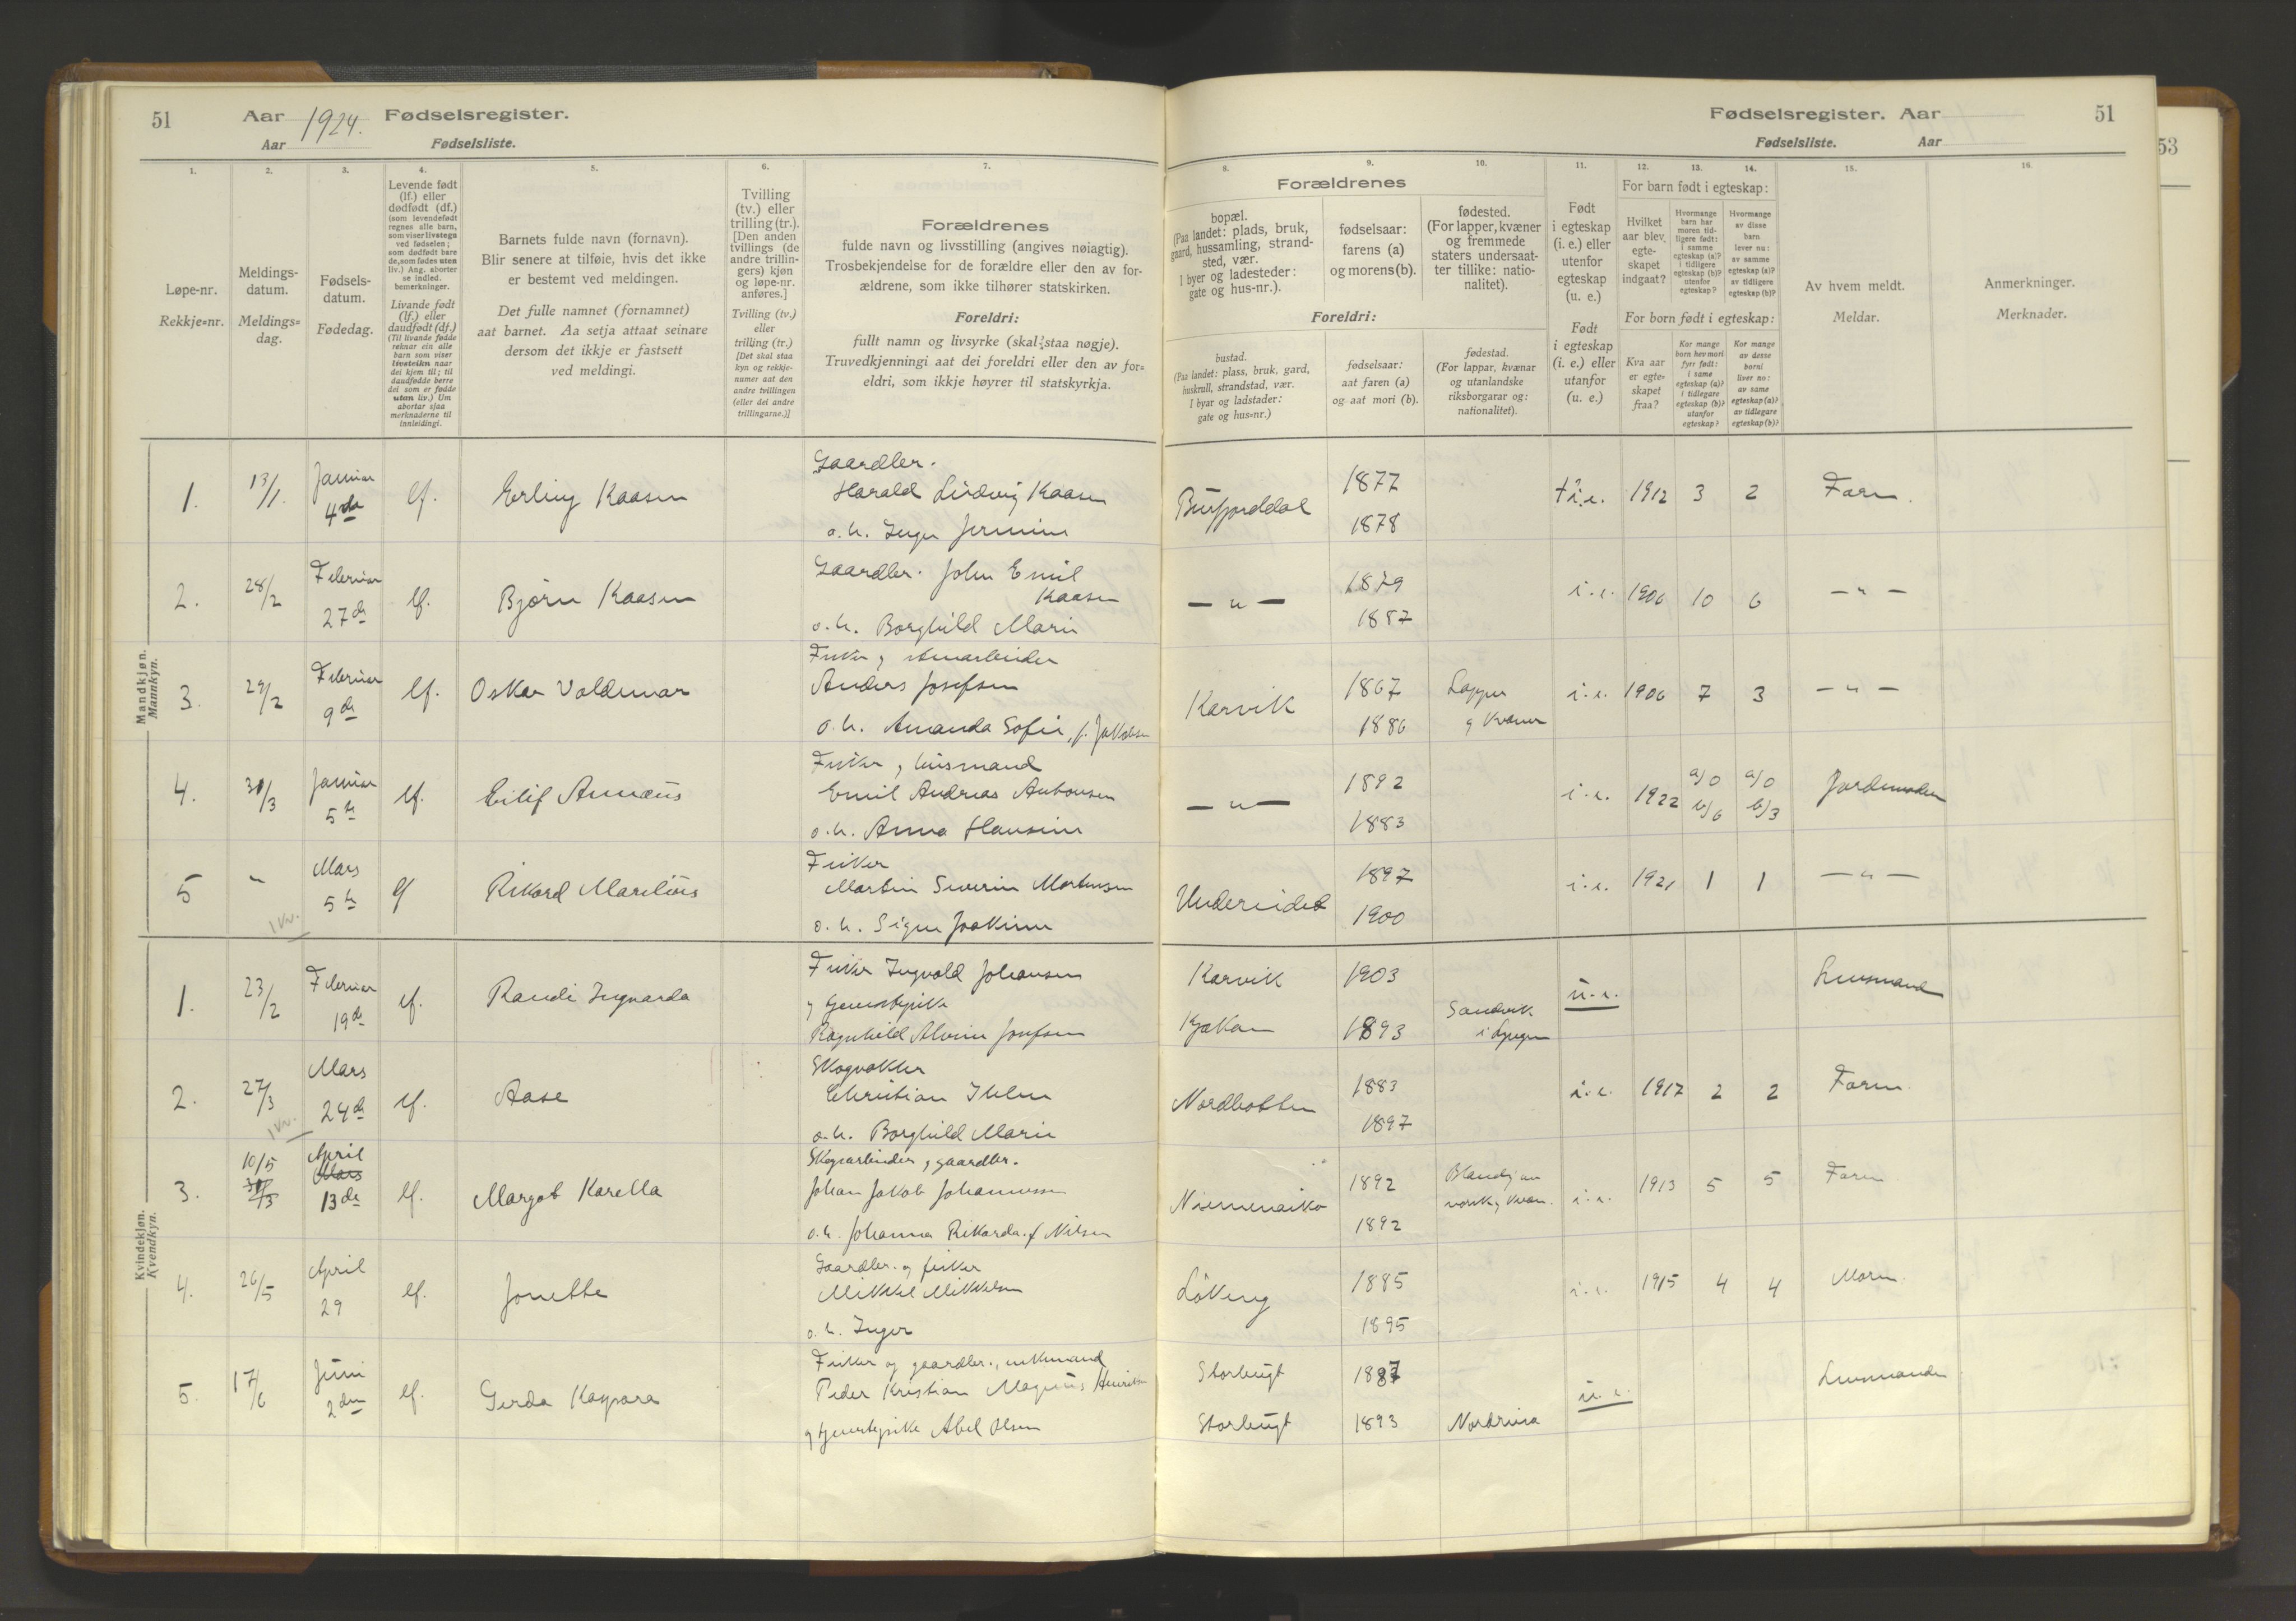 51 Aar 1924. Fødselsregister.
Aar Fødselsliste.
1. 2. 3. 4. 5. 6. 7.
Løpe-nr.
Rekkje=nr.
Meldings-
datum.
Meldings=
dag.
Fødsels-
datum.
Fødedag.
Levende født
(lf.) eller
dødfødt (df.)
(som levendefødt
regnes alle barn,
som viser livstegn
ved fødselen;
som dødfødt bare
de, som fødes uten
liv.) Ang. aborter
se indled.
bemerkninger.
Livande født
(lf.) eller
daudfødt (df.)
(Til livande fødde
reknar ein alle
barn som viser
livsteikn naar
dei kjem til; til
daudfødde berre
dei som er fødde
utan liv.) Um
abortar sjaa
merknaderne til
innleidingi.
Barnets fulde navn (fornavn).
Blir senere at tilføie, hvis det ikke
er bestemt ved meldingen.
Det fulle namnet (fornamnet)
aat barnet. Aa setja attaat seinare
dersom det ikkje er fastsett
ved meldingi.
Tvilling
(tv.) eller
trilling (tr.).
[Den anden
tvillings (de
andre trillin-
gers) kjøn
og løpe-nr.
anføres.]
Tvilling (tv.)
eller
trilling (tr.)
[Det skal staa
kyn og rekkje-
numer aat den
andre tvillingen
(eller dei andre
trillingarne.)]
Forældrenes
fulde navn og livsstilling (angives nøiagtig).
Trosbekjendelse for de forældre eller den av for-
ældrene, som ikke tilhører statskirken.
Foreldri:
fullt namn og livsyrke (skal staa nøgje).
Truvedkjenningi aat dei foreldri eller den av for=
eldri, som ikkje høyrer til statskyrkja.
Mandkjøn.
Mannkyn.
1. 13/1. Januar 4de lf. Erling Kaasen
Gaardbr.
Harald Ludvig Kaasen
o. h. Inga Jermine
2. 28/2 Februar 27de lf. Bjørn Kaasen
Gaardbr. John Emil
Kaasen
o. h. Borghild Marie
3. 29/2 Februar 9de lf. Oskar Valdemar
Anders Josefsen
o. h. Amanda Sofie, f. Jakobsen
4. 31/3 Januar 5te lf. Eilif Annæus
Fisker, husmand
Emil Andreas Antonsen
o. h. Anna Hansine
5 " Mars 5te lf Rikard Marelius
1 kv.
Fisker
Martin Severin Mortensen
o. h. Signe Joakime
Kvindekjøn.
Kvendkyn.
1. 23/2 Februar 19de lf. Randi Ingvarda
Fisker Ingvald Johansen
og tjenestepike
Ragnhild Alvine Josefsen
2. 27/3 Mars 24de lf. Aase
1 kv.
Skogvokter
Christian Ihlen
o. h. Borghild Marie
3. 10/5 31/3 April Mars 13de lf. Margot Karella
Skogsarbeider, gaardbr.
Johan Jakob Johannessen
o. h. Johanna Rikarda f. Nilsen
4. 26/5 April 29 lf. Jonette
Gaardbr. og fisker
Mikkel Mikkelsen
o. h. Inger
5. 17/6 Juni 2den lf. Gerda Kaspara
Fisker og gaardbr., enkemand
Peder Kristian Magnus Henriksen
og tjenestepike Abel Olsen
Fødselsregister. Aar 51
Fødselsliste. Aar
53
8. 9. 10. 11. 12. 13. 14. 15. 16.
Forældrenes
bopæl.
(Paa landet: plads, bruk,
gaard, hussamling, strand-
sted, vær.
I byer og ladesteder:
gate og hus-nr.).
fødselsaar:
farens (a)
og morens (b).
fødested.
(For lapper, kvæner
og fremmede
staters undersaat-
ter tillike: natio-
nalitet).
Foreldri:
bustad.
(Paa landet: plass, bruk, gard,
huskrull, strandstad, vær.
I byar og ladstader:
gate og hus=nr.)
fødselsaar:
aat faren (a)
og aat mori (b).
fødestad.
(For lappar, kvænar
og utanlandske
riksborgarar og:
nationalitet).
Født
i egteskap
(i. e.) eller
utenfor
egteskap
(u. e.)
Født
i egteskap
(i. e.) eller
utanfor
egteskap
(u. e.)
For barn født i egteskap:
Hvilket
aar blev
egte-
skapet
indgaat?
Hvormange
barn har
moren tid-
ligere født:
i samme
egteskap (a)?
i tidligere
egteskap (b)?
utenfor
egteskap?
Hvormange
av disse
barn
lever nu:
av samme
egteskap (a)?
av tidligere
egteskap (b)?
For born født i egteskap:
Kva aar
er egte-
skapet
fraa?
Kor mange
born hev mori
fyrr født:
i same
egteskap (a)?
i tidlegare
egteskap (b)?
utanfor
egteskap?
Kor mange
av desse
borni
liver no:
av same
egteskap (a)?
av tidlegare
egteskap (b)?
Av hvem meldt.
Meldar.
Anmerkninger.
Merknader.
Burfjorddal 1877 1878 i.e. 1912 3 2 Faren.
— " — 1879 1887 i.e. 1906 10 6 — " —
Karvik 1867 1886 Lapper
og kvæner i.e. 1906 7 3 — " —
— " — 1892 1883 i.e. 1922 a/0 b/6 a/0 b/3 Jordmoderen
Undereidet 1897 1900 i.e. 1921 1 1 — " —
Karvik 1903
Kjækan 1893 Sandvik
i Lyngen u.e. Lensmand
Nordbotten 1883 1897 i.e. 1917 2 2 Faren.
Niemenaiko 1892 1892 Blanding av
norsk og kvæn. i.e. 1913 5 5 Faren
Løkeng 1885 1895 i.e. 1915 4 4 Moren.
Storbugt 1887
Storbugt 1893 u.e. Lensmanden